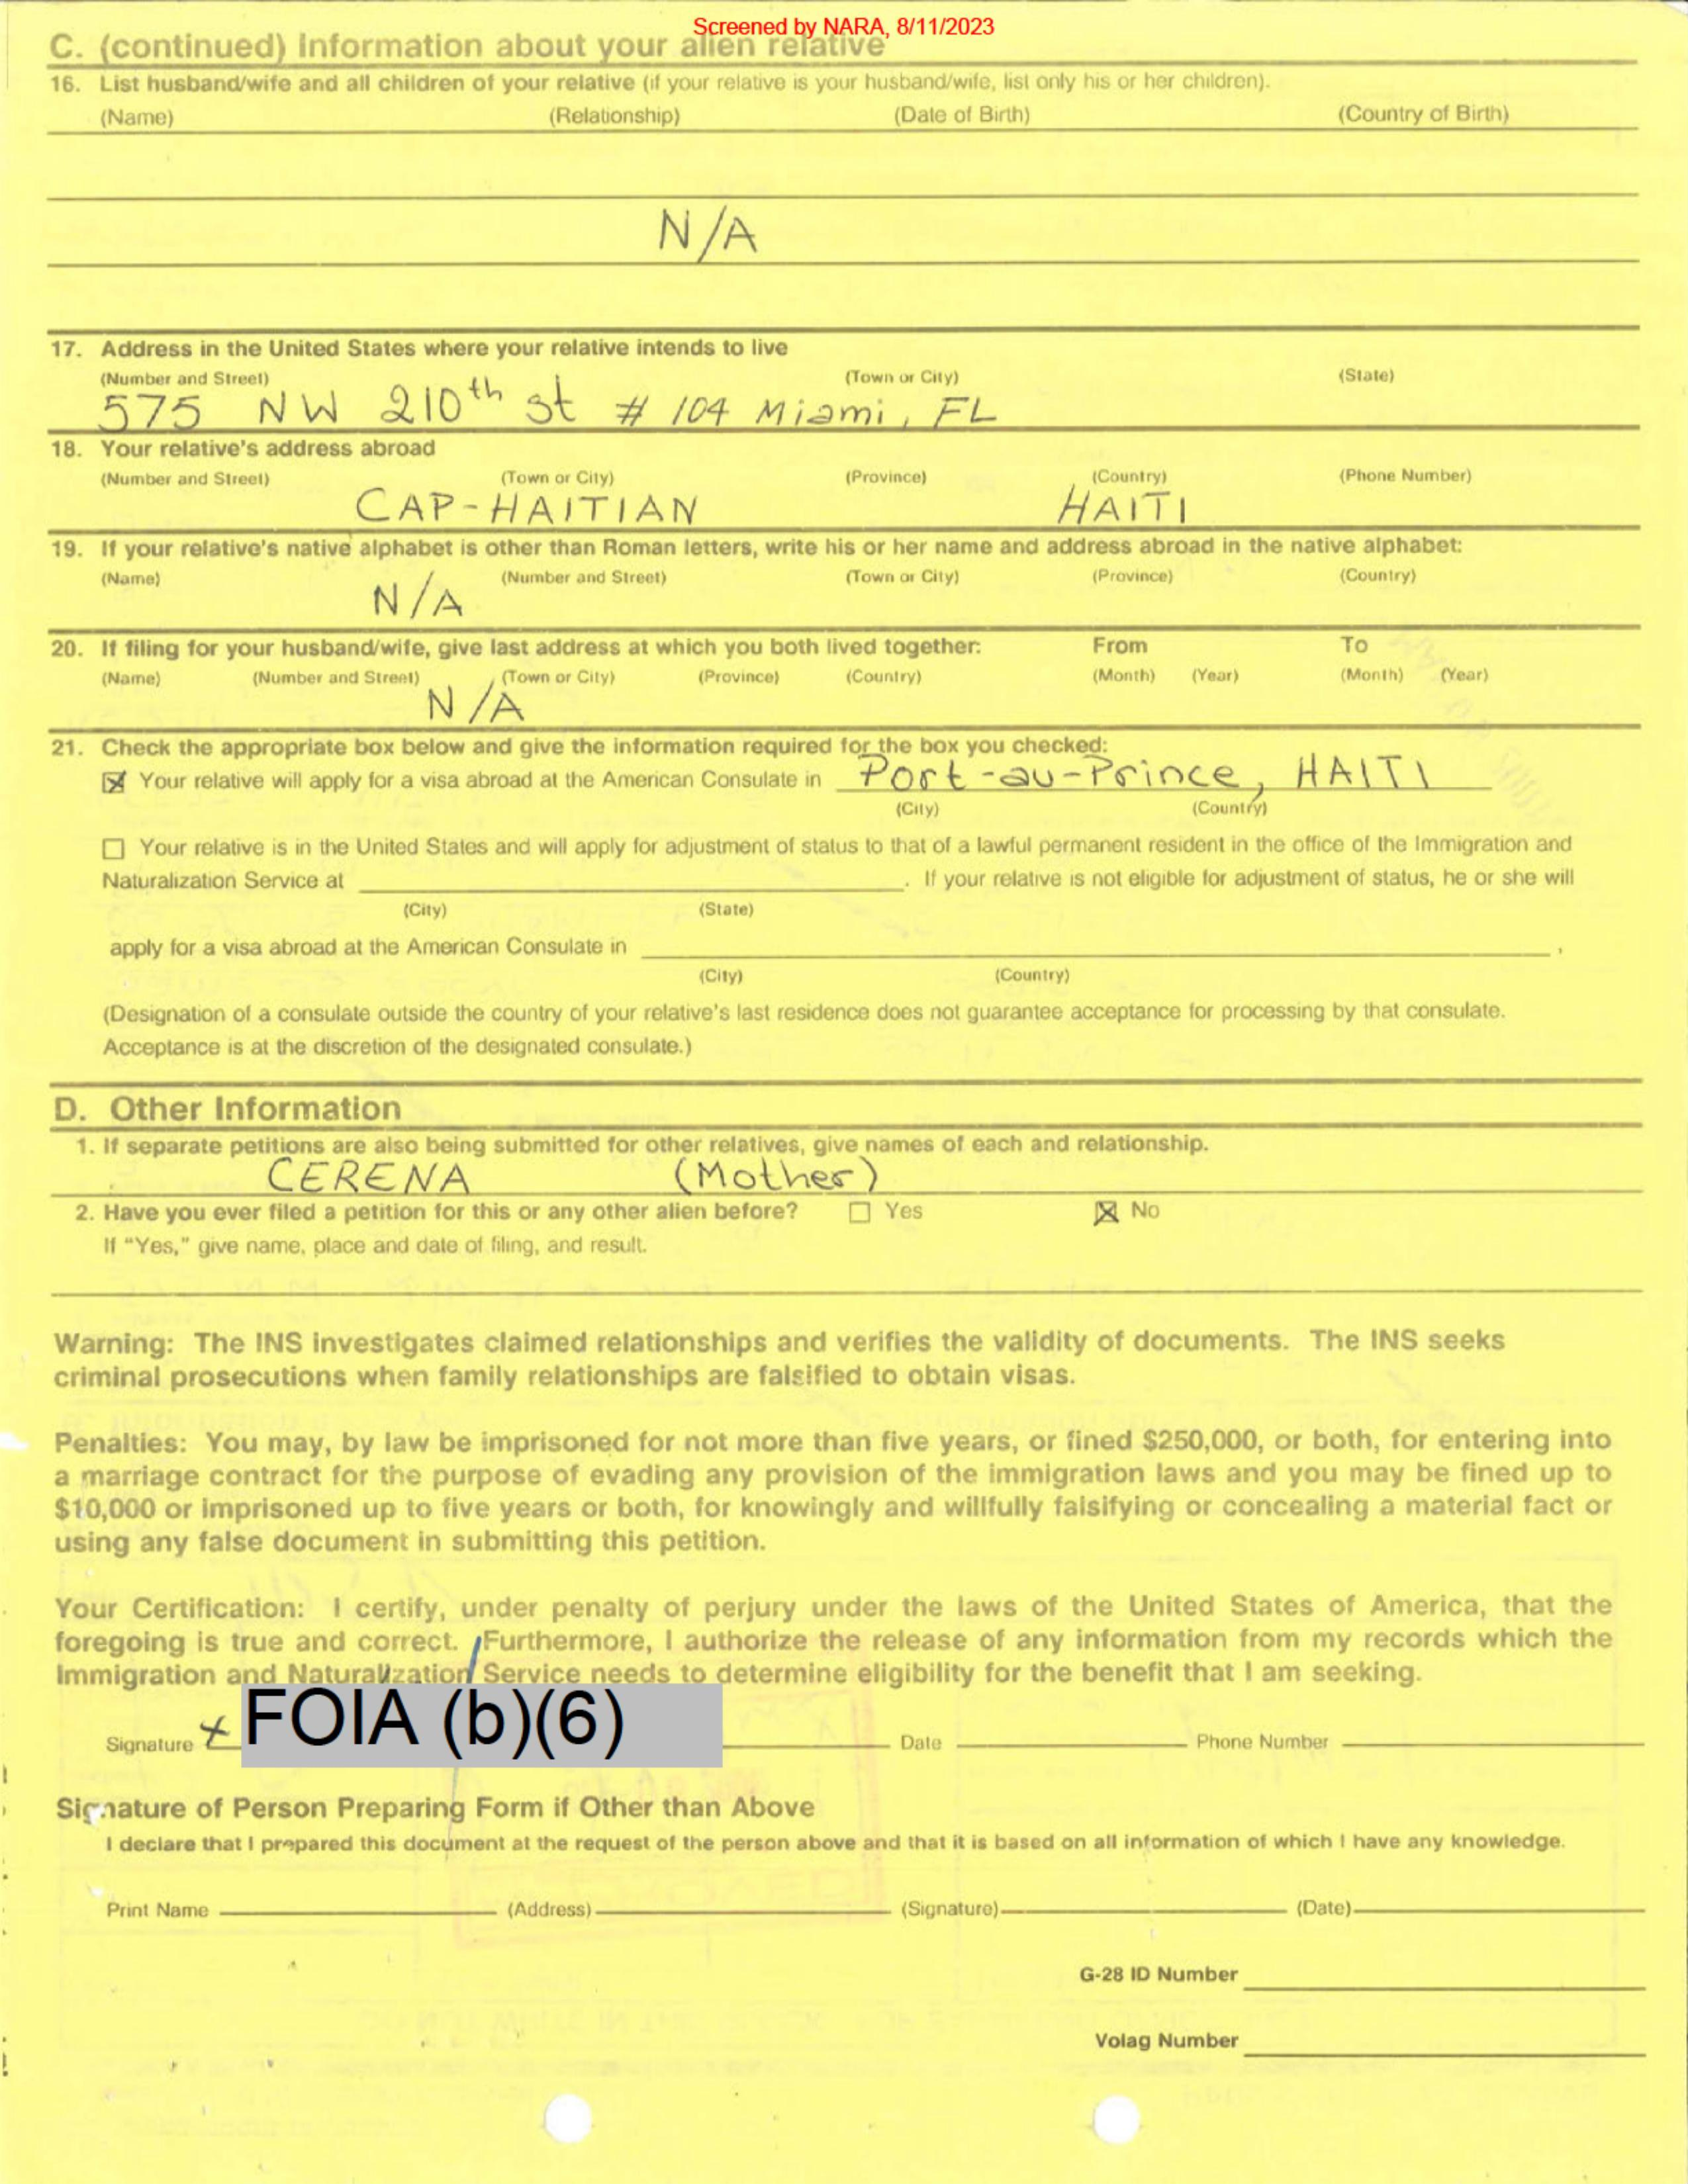 Screened by NARA, 8/11/2023
C. (continued) Information about your alien relative
16. List husband/wife and all children of your relative (if your relative is your husband/wife, list only his or her children).
(Name) (Relationship) (Date of Birth) (Country of Birth)
N/A
17. Address in the United States where your relative intends to live
(Number and Street) (Town or City) (State)
575 NW 210th st # 104 Miami, FL
18. Your relative's address abroad
(Number and Street) (Town or City) (Province) (Country) (Phone Number)
CAP-HAITIAN HAITI
19. If your relative's native alphabet is other than Roman letters, write his or her name and address abroad in the native alphabet:
(Name) (Number and Street) (Town or City) (Province) (Country)
N/A
20. If filing for your husband/wife, give last address at which you both lived together: From To
(Name) (Number and Street) (Town or City) (Province) (Country) (Month) (Year) (Month) (Year)
N/A
21. Check the appropriate box below and give the information required for the box you checked:
☒ Your relative will apply for a visa abroad at the American Consulate in Port-au-Prince, HAITI
(City) (Country)
☐ Your relative is in the United States and will apply for adjustment of status to that of a lawful permanent resident in the office of the Immigration and
Naturalization Service at . If your relative is not eligible for adjustment of status, he or she will
(City) (State)
apply for a visa abroad at the American Consulate in ,
(City) (Country)
(Designation of a consulate outside the country of your relative's last residence does not guarantee acceptance for processing by that consulate.
Acceptance is at the discretion of the designated consulate.)
D. Other Information
1. If separate petitions are also being submitted for other relatives, give names of each and relationship.
CERENA (Mother)
2. Have you ever filed a petition for this or any other alien before? ☐ Yes ☒ No
If "Yes," give name, place and date of filing, and result.
Warning: The INS investigates claimed relationships and verifies the validity of documents. The INS seeks
criminal prosecutions when family relationships are falsified to obtain visas.
Penalties: You may, by law be imprisoned for not more than five years, or fined $250,000, or both, for entering into
a marriage contract for the purpose of evading any provision of the immigration laws and you may be fined up to
$10,000 or imprisoned up to five years or both, for knowingly and willfully falsifying or concealing a material fact or
using any false document in submitting this petition.
Your Certification: I certify, under penalty of perjury under the laws of the United States of America, that the
foregoing is true and correct. Furthermore, I authorize the release of any information from my records which the
Immigration and Naturalization Service needs to determine eligibility for the benefit that I am seeking.
Signature x FOIA (b)(6) Date Phone Number
Signature of Person Preparing Form if Other than Above
I declare that I prepared this document at the request of the person above and that it is based on all information of which I have any knowledge.
Print Name (Address) (Signature) (Date)
G-28 ID Number
Volag Number